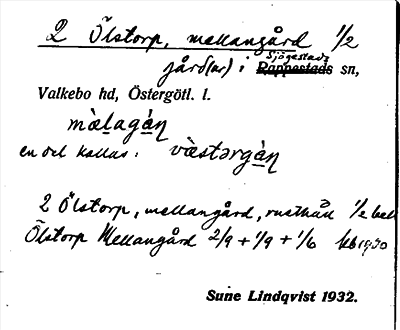 2 Ölstorp, mellangård 1/2
Sjögestads
gård(ar) i Rappestads sn,
Valkebo hd, Östergötl. l.
mὲlagán
en del kallas: västərgán
2 Ölstorp, mellangård, rusthåll 1/2
Ölstorp Mellangård 2/9 + 1/9 + 1/6 Jb 1930
Sune Lindqvist 1932.